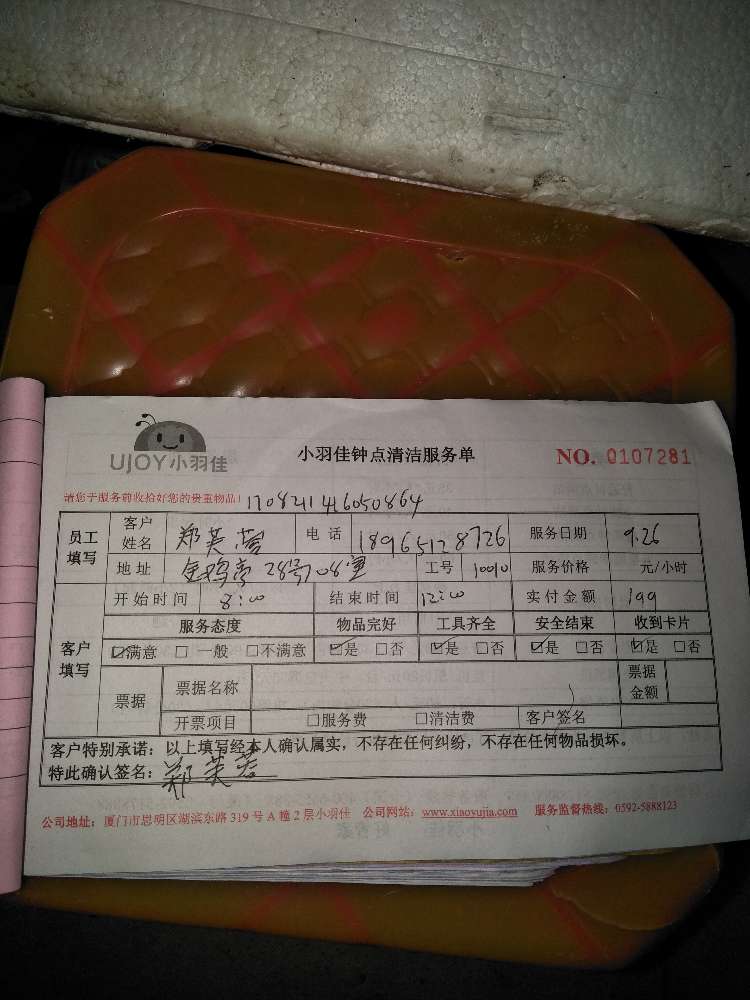 UJOY小羽佳
小羽佳钟点清洁服务单
NO. 0107281
请您于服务前收拾好您的贵重物品!
170821416050864
员工填写 客户姓名 郑芙蓉 电话 18965128726 服务日期 9.26
地址 金鸡亭28号708室 工号 10010 服务价格 元/小时
客户填写 开始时间 8:00 结束时间 12:00 实付金额 199
服务态度 物品完好 工具齐全 安全结束 收到卡片
☑满意 □一般 □不满意 ☑是 □否 ☑是 □否 ☑是 □否 ☑是 □否
票据 票据名称 票据金额
开票项目 □服务费 □清洁费 客户签名
客户特别承诺:以上填写经本人确认属实,不存在任何纠纷,不存在任何物品损坏。
特此确认签名:郑芙蓉
公司地址:厦门市思明区湖滨东路319号A幢2层小羽佳 公司网站:www.xiaoyujia.com 服务监督热线:0592-5888123